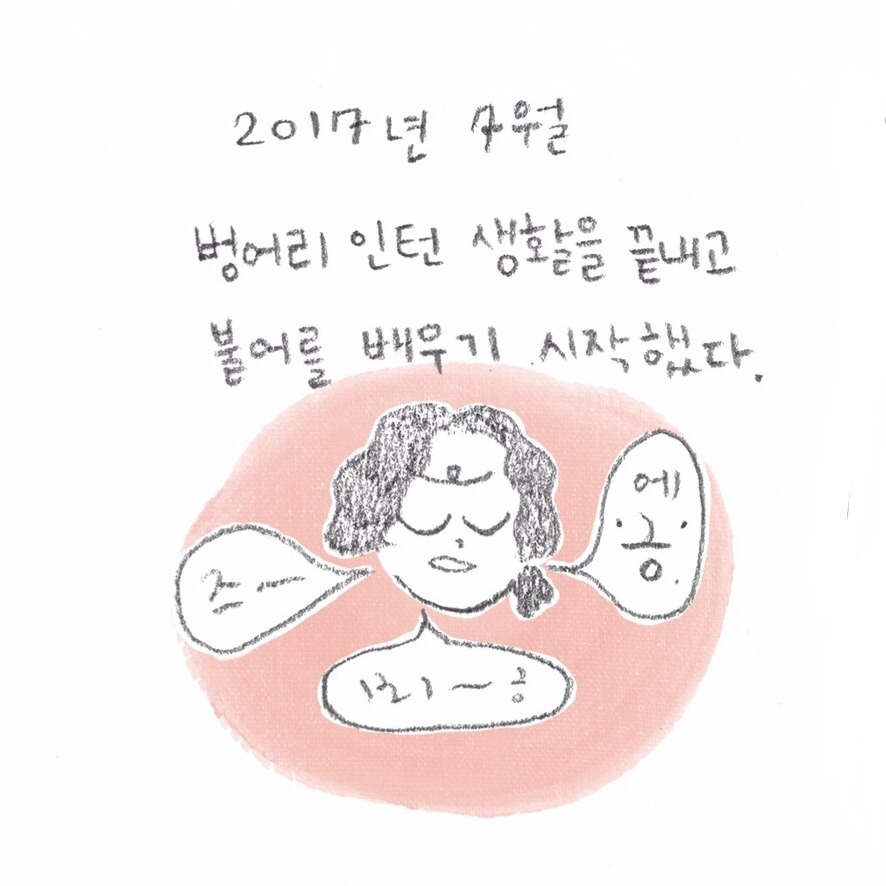 2017년 4월
벙어리 인턴 생활을 끝내고
불어를 배우기 시작했다.
에
긍.
즈ー